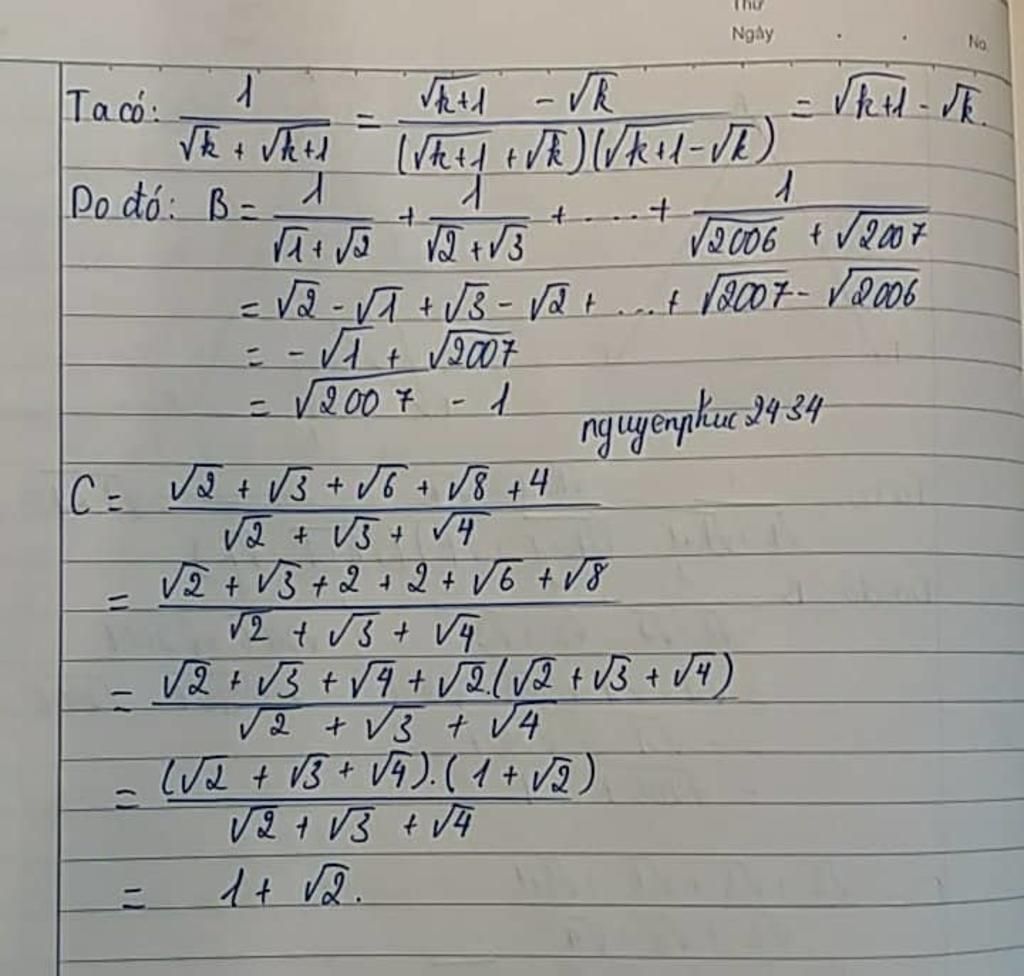 Thứ
Ngày . . No.
Ta có: 1/(√k + √k+1) = (√k+1 - √k)/((√k+1 + √k)(√k+1 - √k)) = √k+1 - √k.
Do đó: B = 1/(√1 + √2) + 1/(√2 + √3) + .... + 1/(√2006 + √2007)
= √2 - √1 + √3 - √2 + ... + √2007 - √2006
= - √1 + √2007
= √2007 - 1
nguyenphuc2434
C = (√2 + √3 + √6 + √8 + 4)/(√2 + √3 + √4)
= (√2 + √3 + 2 + 2 + √6 + √8)/(√2 + √3 + √4)
= (√2 + √3 + √4 + √2.(√2 + √3 + √4))/(√2 + √3 + √4)
= ((√2 + √3 + √4).(1 + √2))/(√2 + √3 + √4)
= 1 + √2.